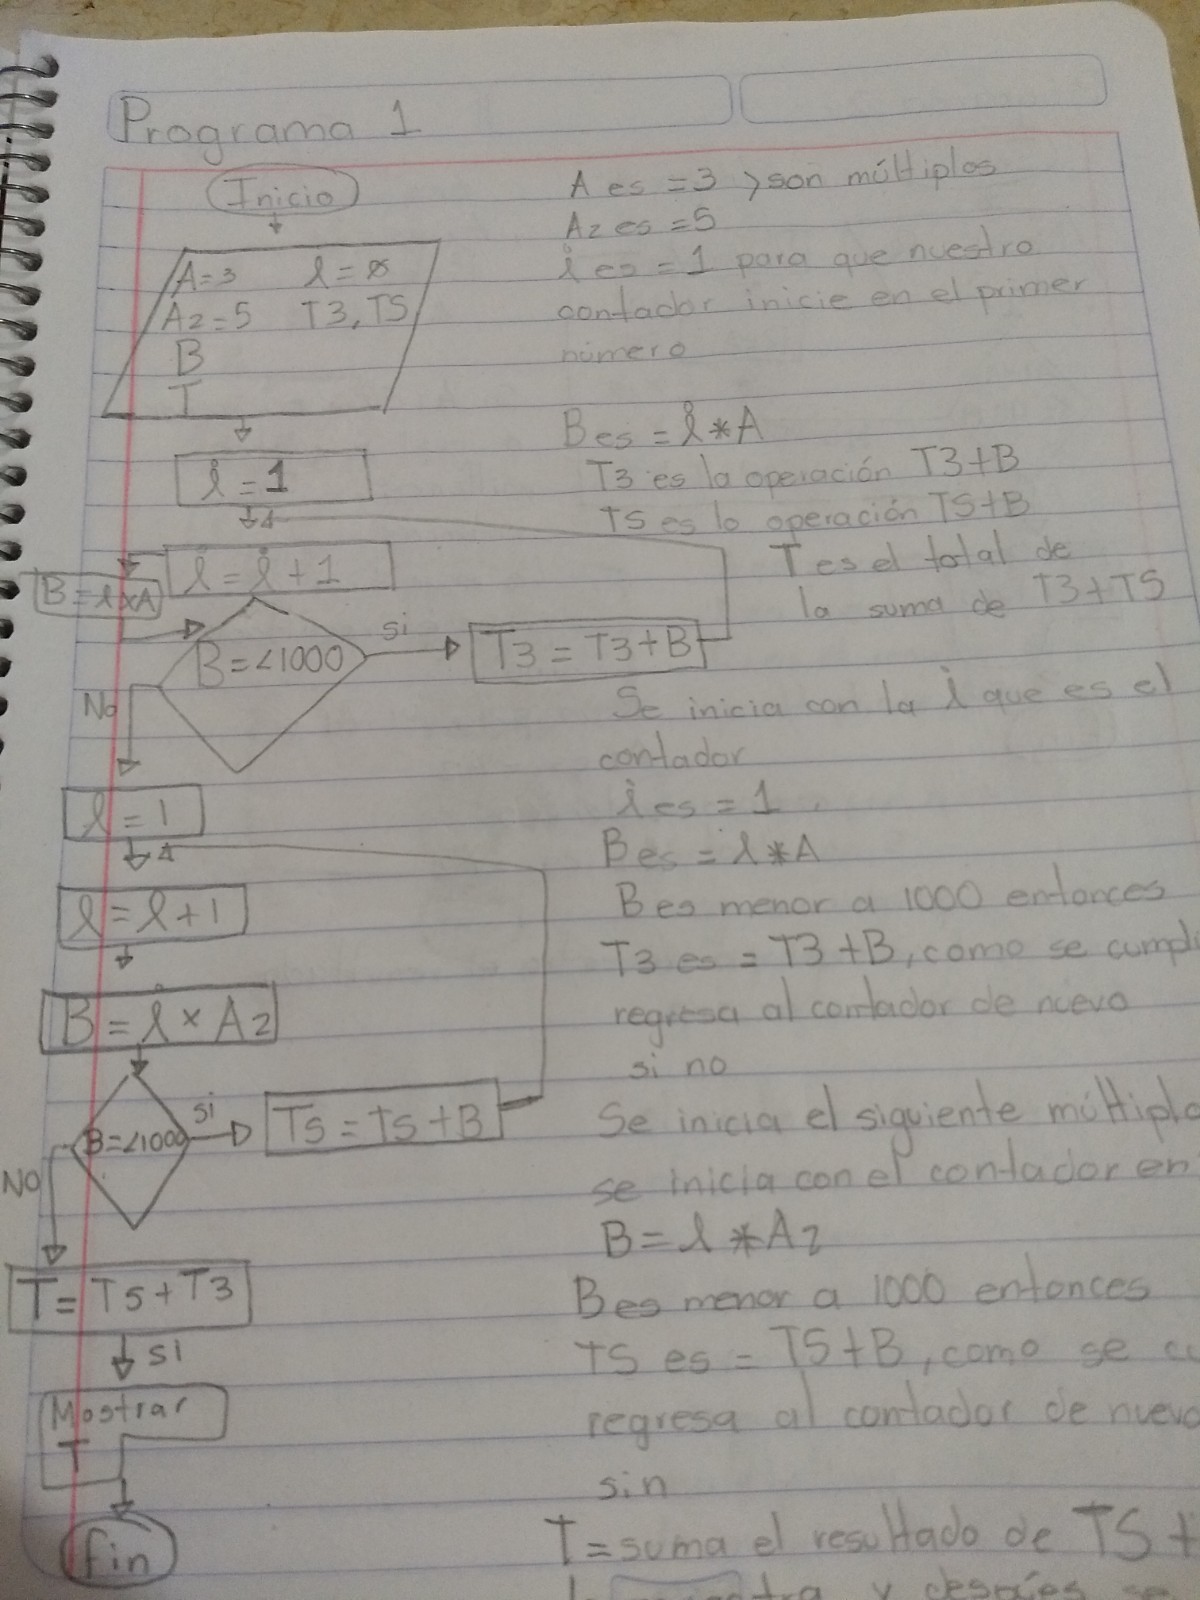 Programa 1
Inicio
A=3 i=0
A2=5 T3, T5
B
T
i=1
i=i+1
B=i×A
B=<1000
Si
T3=T3+B
No
i=1
i=i+1
B=i×A2
B=<1000
Si
T5=T5+B
NO
T=T5+T3
SI
Mostrar
T
fin
A es =3 > son múltiplos
A2 es =5
i es =1 para que nuestro
contador inicie en el primer
número
B es = i*A
T3 es la operación T3+B
T5 es la operación T5+B
T es el total de
la suma de T3+T5
Se inicia con la i que es el
contador
i es = 1
B es = i*A
B es menor a 1000 entonces
T3 es = T3+B, como se cumpl
regresa al contador de nuevo
si no
Se inicia el siguiente múltiplo
se inicia con el contador en
B=i*A2
B es menor a 1000 entonces
T5 es = T5+B, como se cu
regresa al contador de nuevo
sin
T=suma el resultado de T5+
y después se